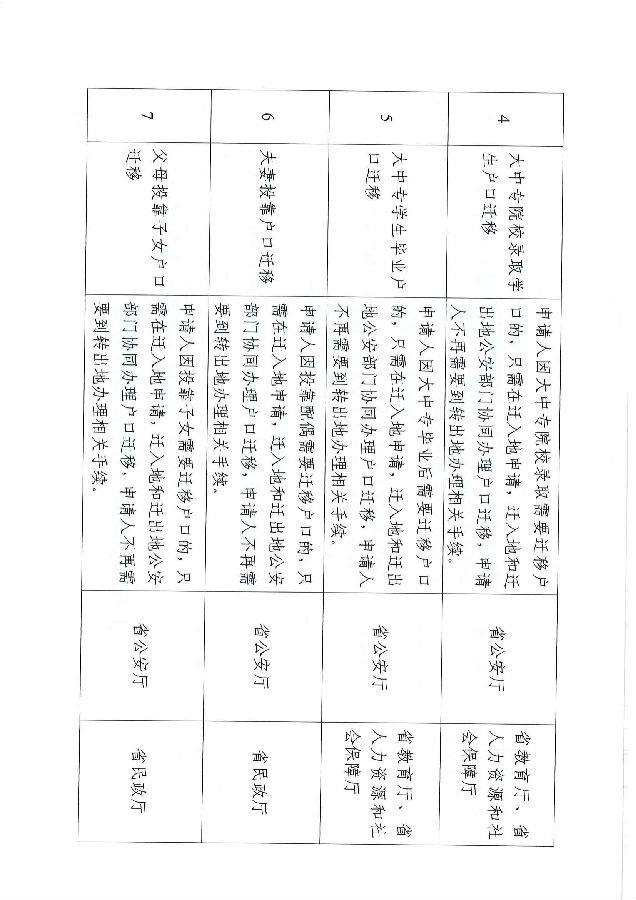 4
大中专院校录取学
生户口迁移
申请人因大中专院校录取需要迁移户
口的，只需在迁入地申请，迁入地和迁
出地公安部门协同办理户口迁移，申请
人不再需要到转出地办理相关手续。
省公安厅
省教育厅、省
人力资源和社
会保障厅
5
大中专学生毕业户
口迁移
申请人因大中专毕业后需要迁移户口
的，只需在迁入地申请，迁入地和迁出
地公安部门协同办理户口迁移，申请人
不再需要到转出地办理相关手续。
省公安厅
省教育厅、省
人力资源和社
会保障厅
6
夫妻投靠户口迁移
申请人因投靠配偶需要迁移户口的，只
需在迁入地申请，迁入地和迁出地公安
部门协同办理户口迁移，申请人不再需
要到转出地办理相关手续。
省公安厅
省民政厅
7
父母投靠子女户口
迁移
申请人因投靠子女需要迁移户口的，只
需在迁入地申请，迁入地和迁出地公安
部门协同办理户口迁移，申请人不再需
要到转出地办理相关手续。
省公安厅
省民政厅